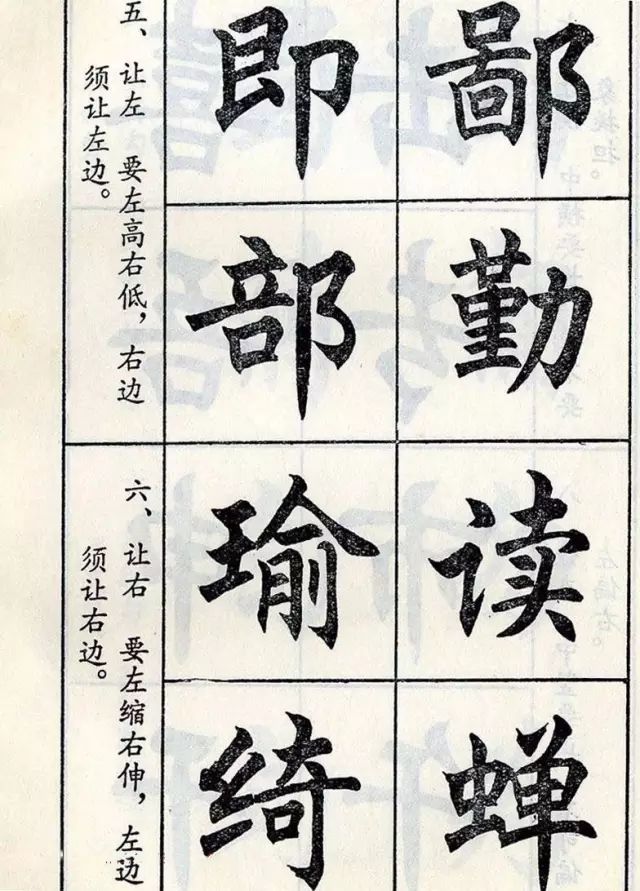 鄙勤
即部
五、让左 要左高右低，右边
须让左边。
读蝉
瑜绮
六、让右 要左缩右伸，左边
须让右边。